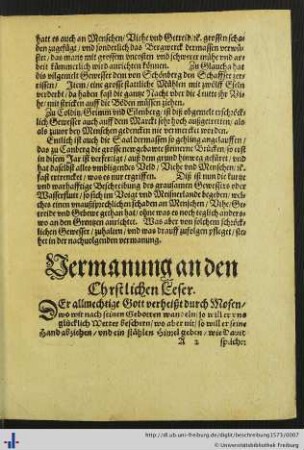 hatt es auch an Menschen/ Viehe vnd Getreid/ꝛc. grossen schaden
zugefügt/ vnd sonderlich das Bergwerck dermassen verwüstet/
das mans mit grossem vncosten vnd schwerer mühe vnd arbeit
kümmerlich wird anrichten können. Zu Glaucha hat
das vilgemelt Gewesser dem von Schönberg den Schaffstet zerrissen/
Item/ eine grosse stattliche Mühlen mit zwölff Eseln
verderbt/ da haben fast die gantze Nacht vber die Leutte ihr Vihe/
mit stricken auff die Böden müssen ziehen.
Zu Leibtz/ Grimm vnd Eilenberg/ ist diß obgemelt erschrecklich
Gewesser auch auff dem Marckt sehr hoch außgetretten/ als
als zuuor bey Menschen gedencken nie vermerckt worden.
Entlich ist auch die Saal dermassen so gehling angelauffen/
das zu Camberg die grosse new gebawte steinerne Brücken/ so erst
in disem Jar ist verfertiget/ auß dem grund hinweg gefürt/ vnd
hat daselbst alles vmbligendes Veld/ Viehe vnd Menschen/ꝛc.
fast ertrencket/ was es nur ergriffen. Diß ist nun die kurtze
vnd warhafftige Beschreibung des grausamen Gewessers oder
Wasserflutt/ so sich im Voigt vnd Meisnerlande begeben/ welches
einen vnaussprechlichen schaden an Menschen/ Vihe/ Getreide
vnd Gebewe gethan hat/ ohne was es noch teglich anderswo
an den Grentzen anrichtet. Was aber von solchem schröcklichen
Gewesser/ zuhalten/ vnd was drauff zufolgen pfleget/ stehet
hie in der nachuolgenden vermanung.
Vermanung an den
Chrstlichen Leser.
DEr allmechtige Gott verheißt durch Mosen/
wo wir nach seinen Gebotten wandeln/ so will er vns
glücklich Wetter beschern/ wo aber nit/ so will er seine
Hand abziehen/ vnd ein stählen Himel geben/ wie Dauid
A 2 spricht:
http://dl.ub.uni-freiburg.de/diglit/beschreibung1573/0007
© Universitätsbibliothek Freiburg